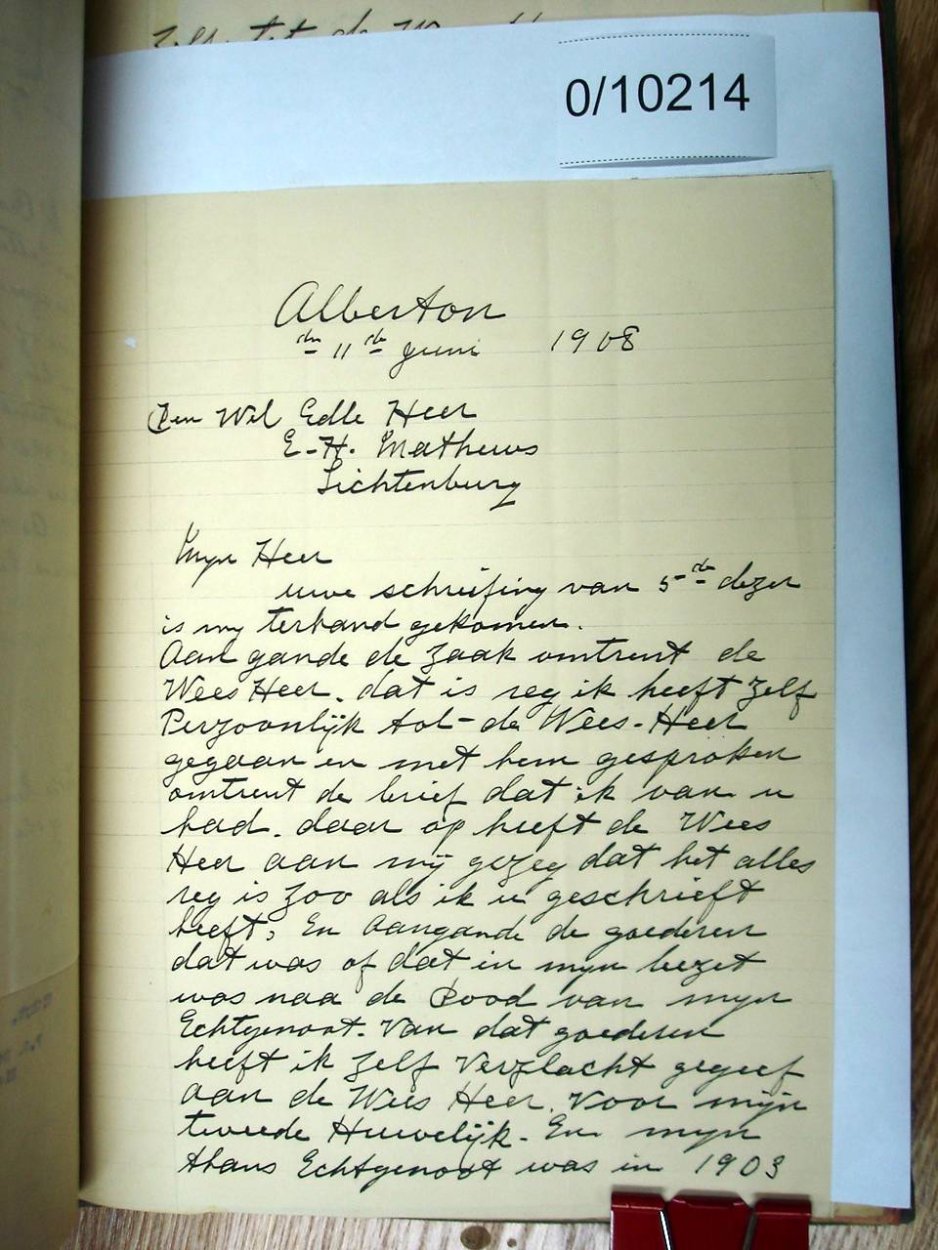 0/10214
Alberton
den 11de Juni 1908
Den Wel Edle Heer
E. H. Mathews
Lichtenburg
Myn Heer
uwe schrijfing van 5de dezer
is my terhand gekomen.
Aan gande de zaak omtrent de
Wees Heer. dat is reg ik heeft zelf
Perzoonlijk tot de Wees-Heer
gegaan en met hem gesproken
omtrent de brief dat ik van u
had. daar op heeft de Wees
Heer aan mij gezeg dat het alles
reg is zoo als ik u geschrieft
heeft, En aangande de goederen
dat was of dat in myn bezet
was naa de Dood van myn
Echtgenoot. Van dat goederen
heeft ik zelf Verzlacht gegeef
aan de Wees Heer. Voor mijn
tweede Huwelijk. En myn
thans Echtgenoot was in 1903